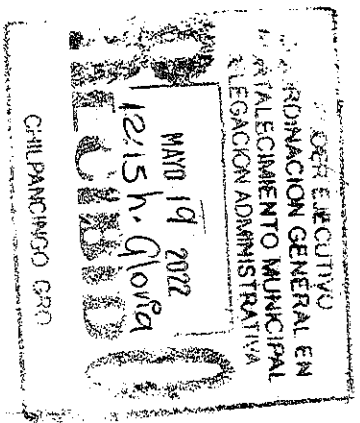 PODER EJECUTIVO
COORDINACION GENERAL EN
FORTALECIMIENTO MUNICIPAL
DELEGACION ADMINISTRATIVA
MAYO 19 2022
12:15 h. Gloria
RECIBIDO
CHILPANCINGO GRO